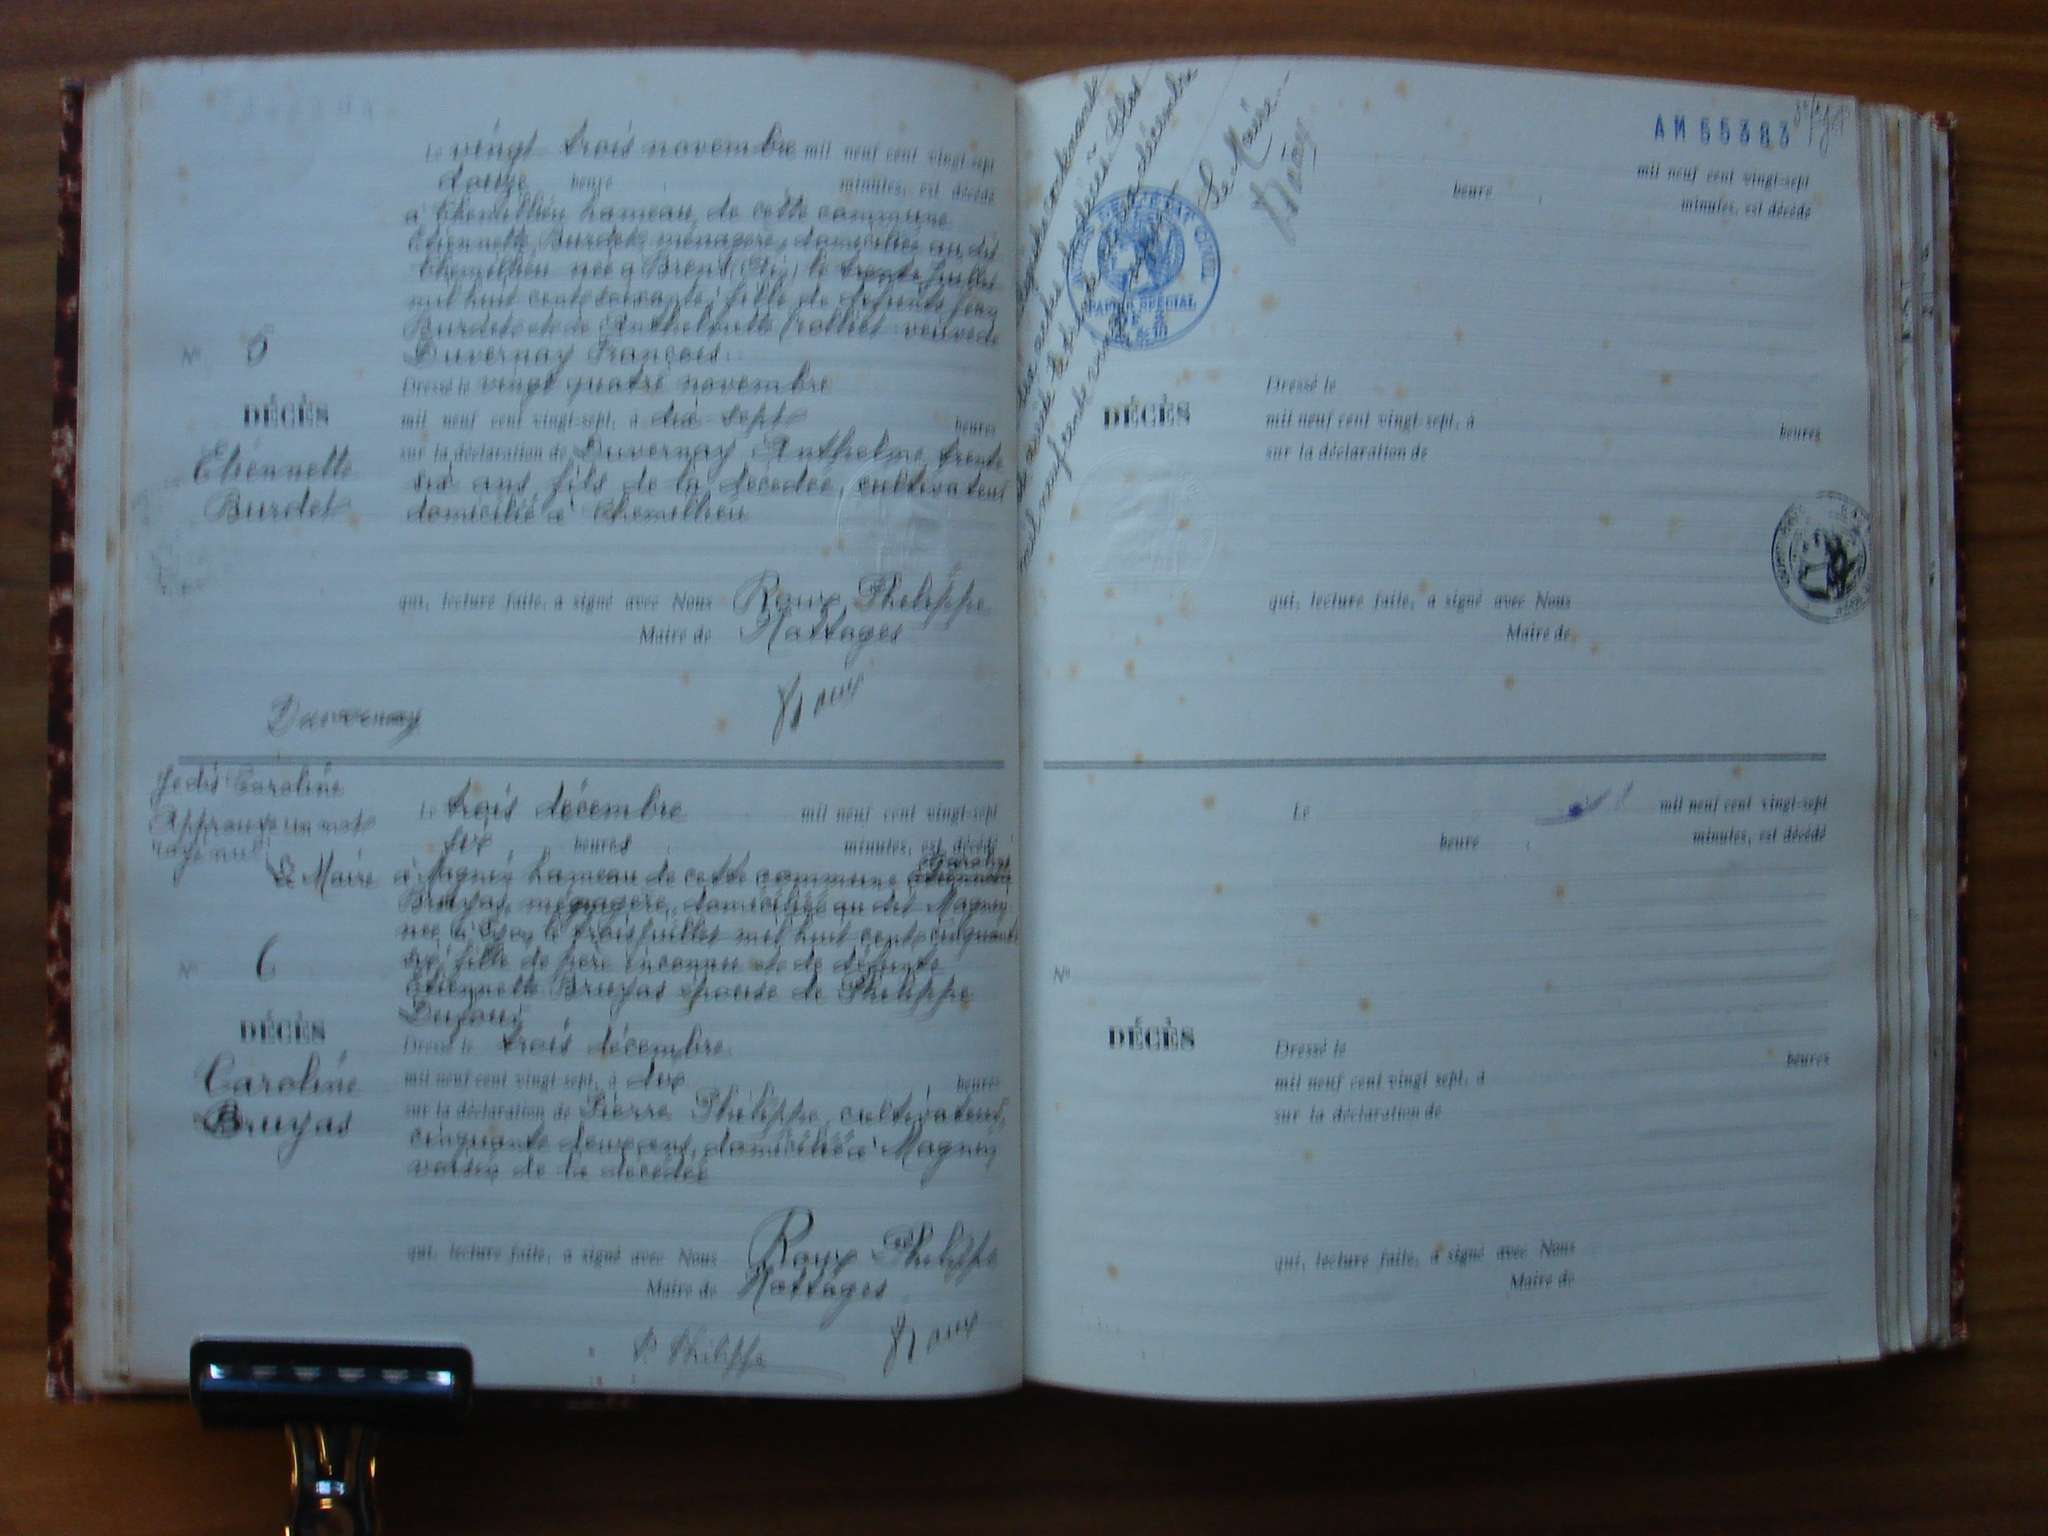 Le vingt trois novembre mil neuf cent vingt-sept
douze heure minutes, est décédé
à Chemillieu hameau de cette commune
Etiennette Burdet, ménagère, domiciliée au dit
Chemillieu née à Brens (Ain) le trente Juillet
mil huit cent soixante, fille de défunts Jean
Burdet et de Anthelmette veuve de
Duvernay François.
Nº 5
DÉCÈS
Etiennette
Burdet
Dressé le vingt quatre novembre
mil neuf cent vingt-sept, à dix sept heures
sur la déclaration de Duvernay Anthelme, trente
six ans, fils de la décédée, cultivateur
domicilié à Chemillieu
qui, lecture faite, a signé avec Nous Roux Philippe
Maire de Nattages
Duvernay
Roux
Je dis Caroline
Approuvé un mot
rayé nul
Le Maire
Le trois décembre mil neuf cent vingt-sept
six heures minutes, est décédé
à Magnin hameau de cette commune Caroline
Bruyas, ménagère, domiciliée au dit Magnin
née à le trois juillet mil huit cent cinquante
six, fille de père inconnu et de défunte
Etiennette Bruyas épouse de Philippe
Nº 6
DÉCÈS
Caroline
Bruyas
Dressé le trois décembre
mil neuf cent vingt-sept, à dix heures
sur la déclaration de Pierre Philippe, cultivateur,
cinquante deux ans, domicilié à Magnin
voisin de la décédée
qui, lecture faite, a signé avec Nous Roux Philippe
Maire de Nattages
P. Philippe Roux
AM 55383
mil neuf cent vingt-sept
heure minutes, est décédé
décembre
Le Maire
Roux
PAPIER SPECIAL
DÉCÈS
Dressé le
mil neuf cent vingt-sept, à heures
sur la déclaration de
qui, lecture faite, a signé avec Nous
Maire de
Le mil neuf cent vingt-sept
heure minutes, est décédé
Nº
DÉCÈS
Dressé le
mil neuf cent vingt-sept, à heures
sur la déclaration de
qui, lecture faite, a signé avec Nous
Maire de